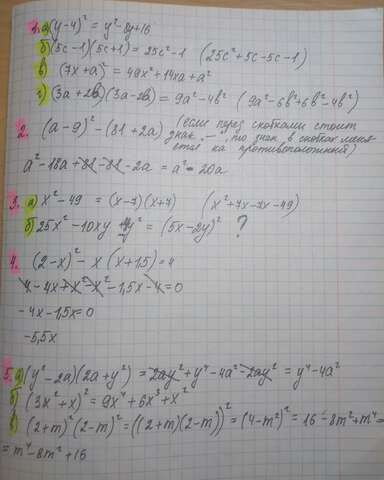 1. а) (y-4)² = y²-8y+16
б) (5c-1)(5c+1) = 25c²-1 (25c²+5c-5c-1)
в) (7x+a)² = 49x²+14xa+a²
г) (3a+2b)(3a-2b) = 9a²-4b² (9a²-6b²+6b²-4b²)
2. (a-9)² - (81+2a) (если перед скобками стоит
знак -, то знак в скобках меня-
ется на противоположный)
a²-18a+81-81-2a = a²-20a
3. а) x²-49 = (x-7)(x+7) (x²+7x-7x-49)
б) 25x²-10xy+4y² = (5x-2y)² ?
4. (2-x)² - x(x+1,5) = 4
4-4x+x²-x²-1,5x-4=0
-4x-1,5x=0
-5,5x
5. а) (y²-2a)(2a+y²) = 2ay²+y⁴-4a²-2ay² = y⁴-4a²
б) (3x²+x)² = 9x⁴+6x³+x²
в) (2+m)²(2-m)² = ((2+m)(2-m))² = (4-m²)² = 16-8m²+m⁴ =
= m⁴-8m²+16